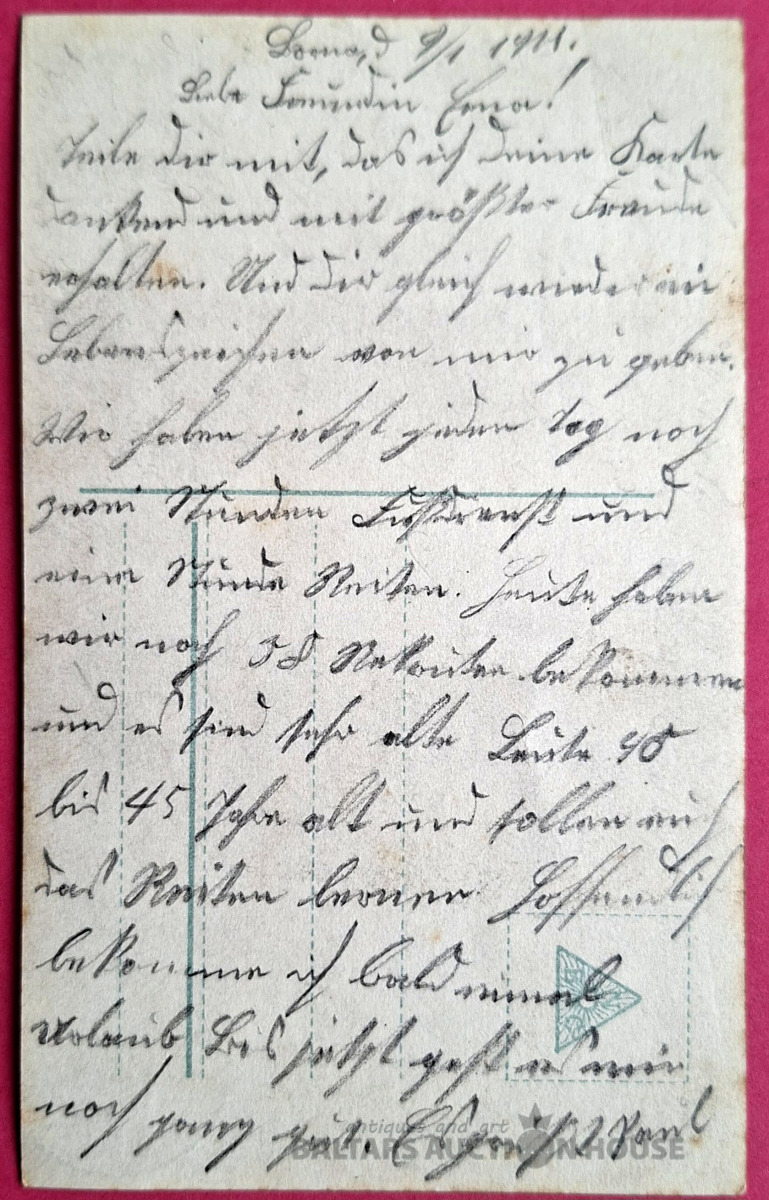 Borna, d 9/1 1911.
Liebe Freundin Erna!
Teile dir mit, das ich deine Karte
dankend und mit größter Freude
erhalten. Und dir gleich wieder ein
Lebenszeichen von mir zu geben.
Wir haben jetzt jeden Tag noch
zwei Stunden Fußdienst und
eine Stunde Reiten. Heute haben
wir noch 58 Rekruten bekommen
und es sind sehr alte Leute 40
bis 45 Jahre alt und sollen auch
das Reiten lernen Hoffendlich
bekomme ich bald einmal
Urlaub Bis jetzt geht es mir
noch ganz gut. Es grüßt Paul
antiques and art
BALTARS AUCTION HOUSE